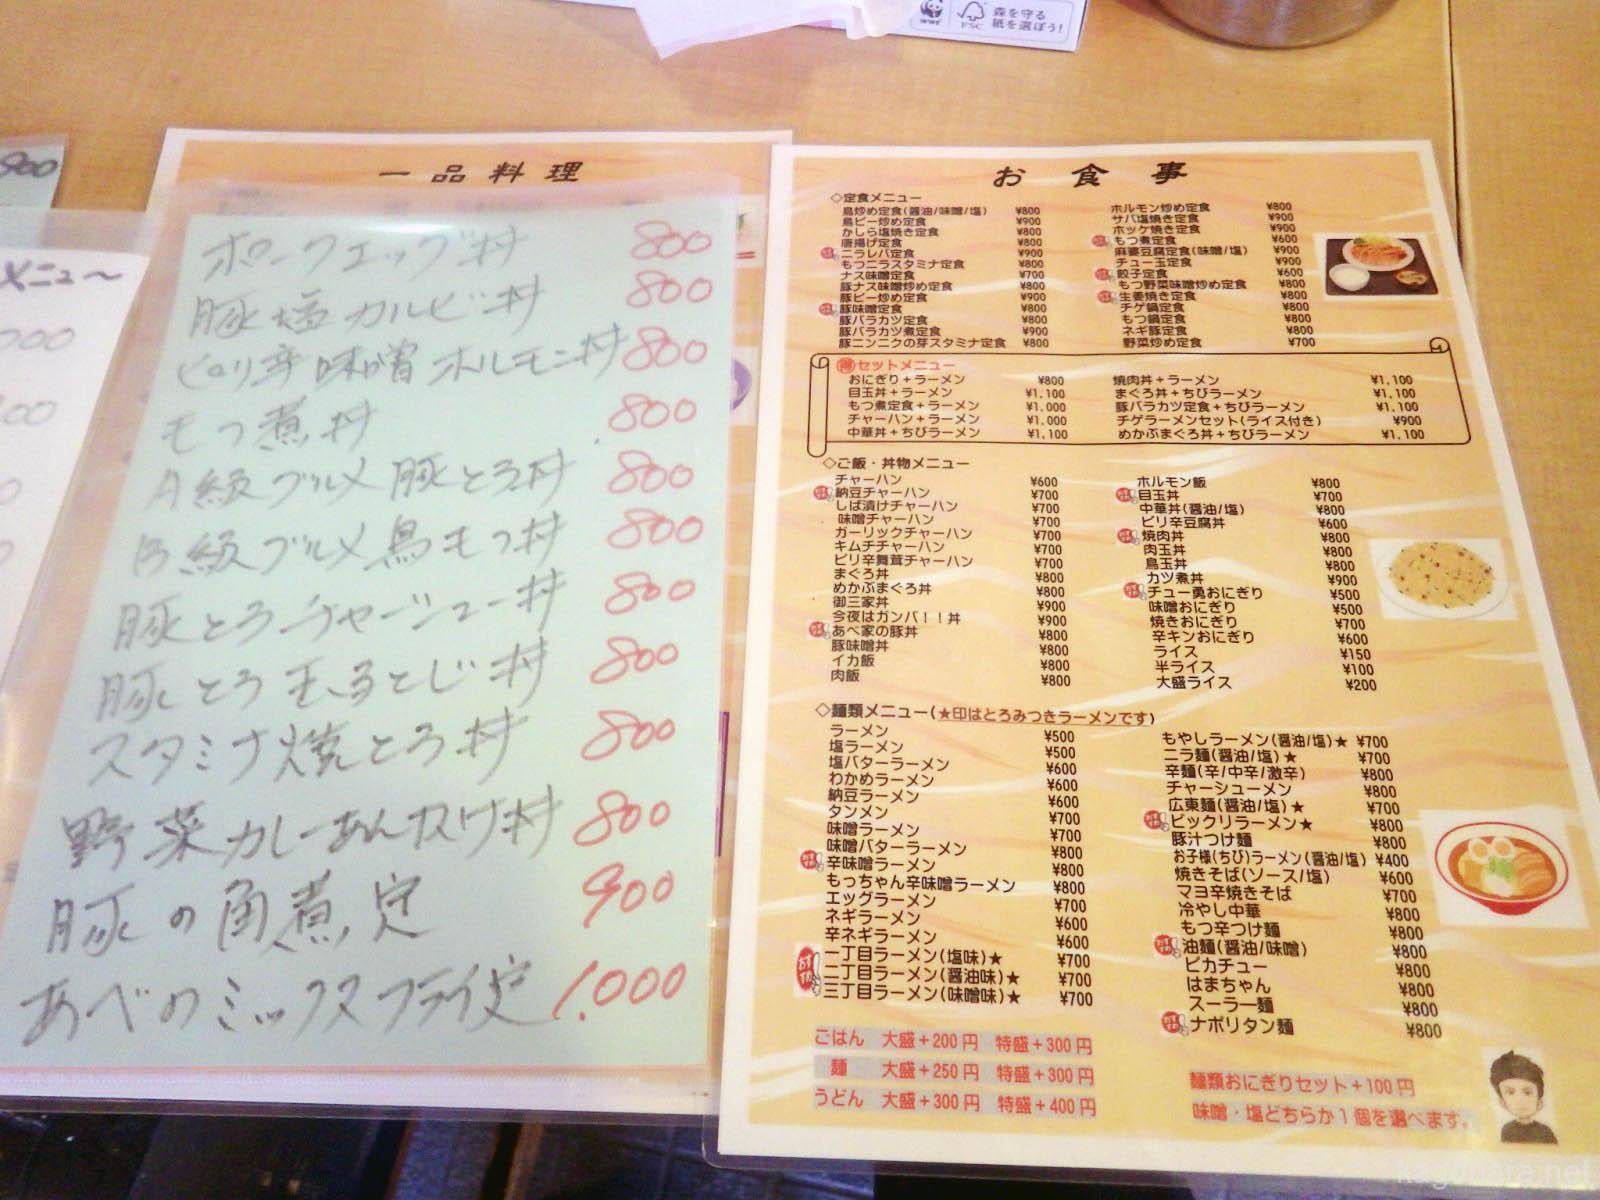 森を守る
紙を選ぼう!
WWF
FSC
900
メニュー
一品料理
ポークエッグ丼 800
豚塩カルビ丼 800
ピリ辛味噌ホルモン丼 800
もつ煮丼 800
A級グルメ豚とろ丼 800
B級グルメ鳥もつ丼 800
豚とろチャーシュー丼 800
豚とろ玉子とじ丼 800
スタミナ焼とろ丼 800
野菜カレーあんかけ丼 800
豚の角煮定 900
あべのミックスフライ定 1.000
お食事
◇定食メニュー
鳥炒め定食(醤油/味噌/塩) ¥800
鳥ピー炒め定食 ¥900
かしら塩焼き定食 ¥800
唐揚げ定食 ¥800
ニラレバ定食 ¥900
もつニラスタミナ定食 ¥800
ナス味噌定食 ¥700
豚ナス味噌炒め定食 ¥800
豚ピー炒め定食 ¥900
豚味噌定食 ¥800
豚バラカツ定食 ¥800
豚バラカツ煮定食 ¥900
豚ニンニクの芽スタミナ定食 ¥800
ホルモン炒め定食 ¥800
サバ塩焼き定食 ¥900
ホッケ焼き定食 ¥900
もつ煮定食 ¥600
麻婆豆腐定食(味噌/塩) ¥900
チュー玉定食 ¥900
餃子定食 ¥600
もつ野菜味噌炒め定食 ¥800
生姜焼き定食 ¥800
チゲ鍋定食 ¥800
もつ鍋定食 ¥800
ネギ豚定食 ¥800
野菜炒め定食 ¥700
得セットメニュー
おにぎり+ラーメン ¥800
目玉丼+ラーメン ¥1,100
もつ煮定食+ラーメン ¥1,000
チャーハン+ラーメン ¥1,000
中華丼+ちびラーメン ¥1,100
焼肉丼+ラーメン ¥1,100
まぐろ丼+ちびラーメン ¥1,100
豚バラカツ定食+ちびラーメン ¥1,100
チゲラーメンセット(ライス付き) ¥900
めかぶまぐろ丼+ちびラーメン ¥1,100
◇ご飯・丼物メニュー
チャーハン ¥600
納豆チャーハン ¥700
しば漬けチャーハン ¥700
味噌チャーハン ¥700
ガーリックチャーハン ¥700
キムチチャーハン ¥700
ピリ辛舞茸チャーハン ¥700
まぐろ丼 ¥800
めかぶまぐろ丼 ¥800
御三家丼 ¥900
今夜はガンバ!!丼 ¥900
あべ家の豚丼 ¥800
豚味噌丼 ¥800
イカ飯 ¥800
肉飯 ¥800
ホルモン飯 ¥800
目玉丼 ¥700
中華丼(醤油/塩) ¥800
ピリ辛豆腐丼 ¥600
焼肉丼 ¥800
肉玉丼 ¥800
鳥玉丼 ¥800
カツ煮丼 ¥900
チュー勇おにぎり ¥500
味噌おにぎり ¥500
焼きおにぎり ¥700
辛キンおにぎり ¥600
ライス ¥150
半ライス ¥100
大盛ライス ¥200
◇麺類メニュー(★印はとろみつきラーメンです)
ラーメン ¥500
塩ラーメン ¥500
塩バターラーメン ¥600
わかめラーメン ¥600
納豆ラーメン ¥600
タンメン ¥700
味噌ラーメン ¥700
味噌バターラーメン ¥800
辛味噌ラーメン ¥800
もっちゃん辛味噌ラーメン ¥800
エッグラーメン ¥700
ネギラーメン ¥600
辛ネギラーメン ¥600
一丁目ラーメン(塩味)★ ¥700
二丁目ラーメン(醤油味)★ ¥700
三丁目ラーメン(味噌味)★ ¥700
もやしラーメン(醤油/塩)★ ¥700
ニラ麺(醤油/塩)★ ¥700
辛麺(辛/中辛/激辛) ¥800
チャーシューメン ¥800
広東麺(醤油/塩)★ ¥700
ビックリラーメン★ ¥800
豚汁つけ麺 ¥800
お子様(ちび)ラーメン(醤油/塩) ¥400
焼きそば(ソース/塩) ¥600
マヨ辛焼きそば ¥700
冷やし中華 ¥800
もつ辛つけ麺 ¥800
油麺(醤油/味噌) ¥800
ピカチュー ¥800
はまちゃん ¥800
スーラー麺 ¥800
ナポリタン麺 ¥800
ごはん 大盛+200円 特盛+300円
麺 大盛+250円 特盛+300円
うどん 大盛+300円 特盛+400円
麺類おにぎりセット+100円
味噌・塩どちらか1個を選べます。